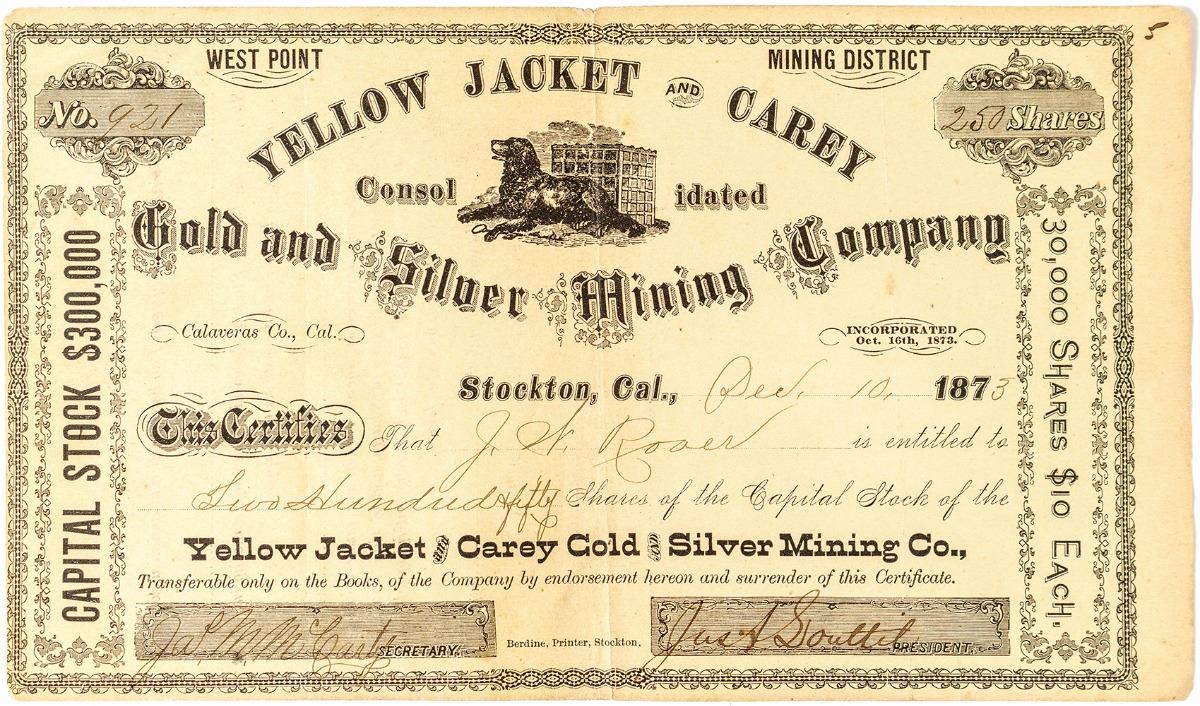 5
WEST POINT
MINING DISTRICT
No. 921
250 Shares
YELLOW JACKET AND CAREY
Consolidated
Gold and Silver Mining Company
Calaveras Co., Cal.
INCORPORATED
Oct. 16th, 1873.
CAPITAL STOCK $300,000
30,000 SHARES $10 EACH.
Stockton, Cal., Dec. 10, 1873
This Certifies That J. W. Rover is entitled to
Two Hundred & fifty Shares of the Capital Stock of the
Yellow Jacket and Carey Gold and Silver Mining Co.,
Transferable only on the Books, of the Company by endorsement hereon and surrender of this Certificate.
SECRETARY.
Berdine, Printer, Stockton.
PRESIDENT.